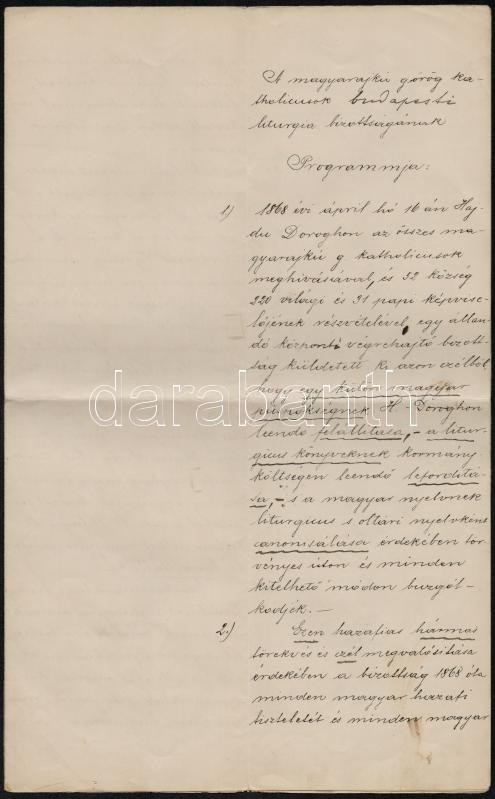 A magyarajkú görög ka-
tholicusok budapesti
liturgia bizottságának
Programmja:
1) 1868 évi ápril hó 16 án Haj-
du Doroghon az összes ma-
gyarajkú g katholicusok
meghivásával, és 52 község
220 világi és 31 papi képvise-
lőjének részvételével, egy állan-
dó központi végrehajtó bizott-
ság küldetett ki azon czélból,
hogy egy külön magyar
püspökségnek H.-Doroghon
leendő felállitása, – a litur-
gicus könyveknek kormány-
költségen leendő leforditá-
sa, – s a magyar nyelvnek
liturgicus s oltári nyelvként
canonisálása érdekében tör-
vényes úton és minden
kitelhető módon buzgól-
kodjék. –
2.) Ezen hazafias hármas
törekvés és czél megvalósitása
érdekében a bizottság 1868 óta
minden magyar hazafi
tiszteletét és minden magyar
darabanth.com